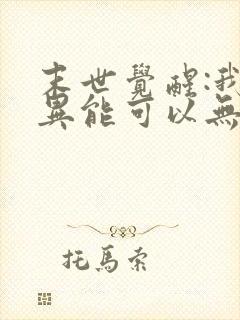 末世覺醒:我
異能可以無
托馬索